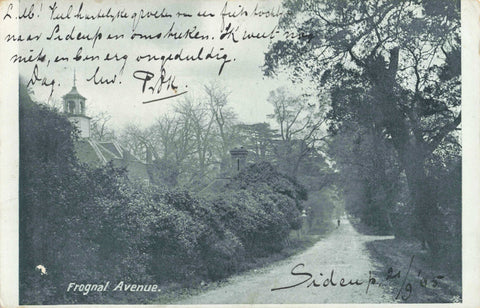 L.M! Veel hartelijke groeten van een fietstocht
naar Sidcup en omstreken. Ik weet nog
niets, en ben erg ongeduldig.
Dag. Uw. P.
Frognal Avenue.
Sidcup 21/9 '05